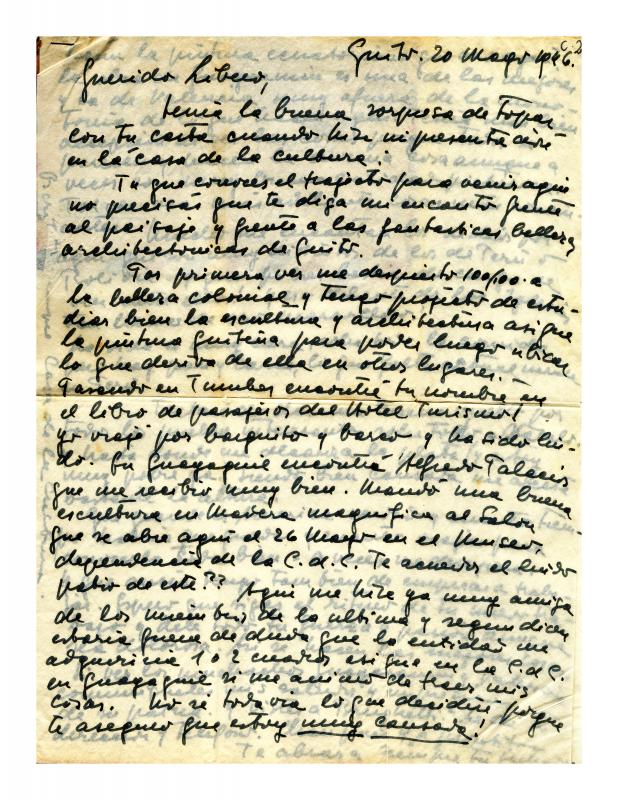 Quito. 20 Mayo 1946.
Querido Libero,
tenia la buena sorpresa de topar
con tu carta cuando hize mi presentación
en la casa de la cultura.
Tu que conoces el trajecto para venir aqui
no precisas que te diga mi encanto frente
al paisaje y frente a las fantasticas bellezas
architectonicas de Quito.
Por primera vez me despierto 100/100 a
la belleza colonial y tengo projecto de estu-
diar bien la escultura y architectura asi que
la pintura quiteña para poder luego ubicar
lo que deriva de ella en otros lugares.
Pasando en Tumbes encontré tu nombre en
el libro de pasajeros del Hotel Turismo!
yo viajé por barquito y barco y ha sido lin-
do. En Guayaquil encontré Alfredo Palacio
que me recibió muy bien. Mandó una buena
escultura en Madera magnifica al Salon
que se abre aqui el 26 Mayo en el Museo,
dependencia de la C.d.C. Te acuerdas el lindo
patio de este??
Aqui me hize ya muy amiga
de los miembros de la ultima y segun dicen
estaria fuera de duda que la entidad me
adquiriria 1 o 2 cuadros asi que en la C.d.C.
en Guayaquil si me animo de traer mis
cosas. No sé todavia lo que decidiré porque
te aseguro que estoy muy cansada!